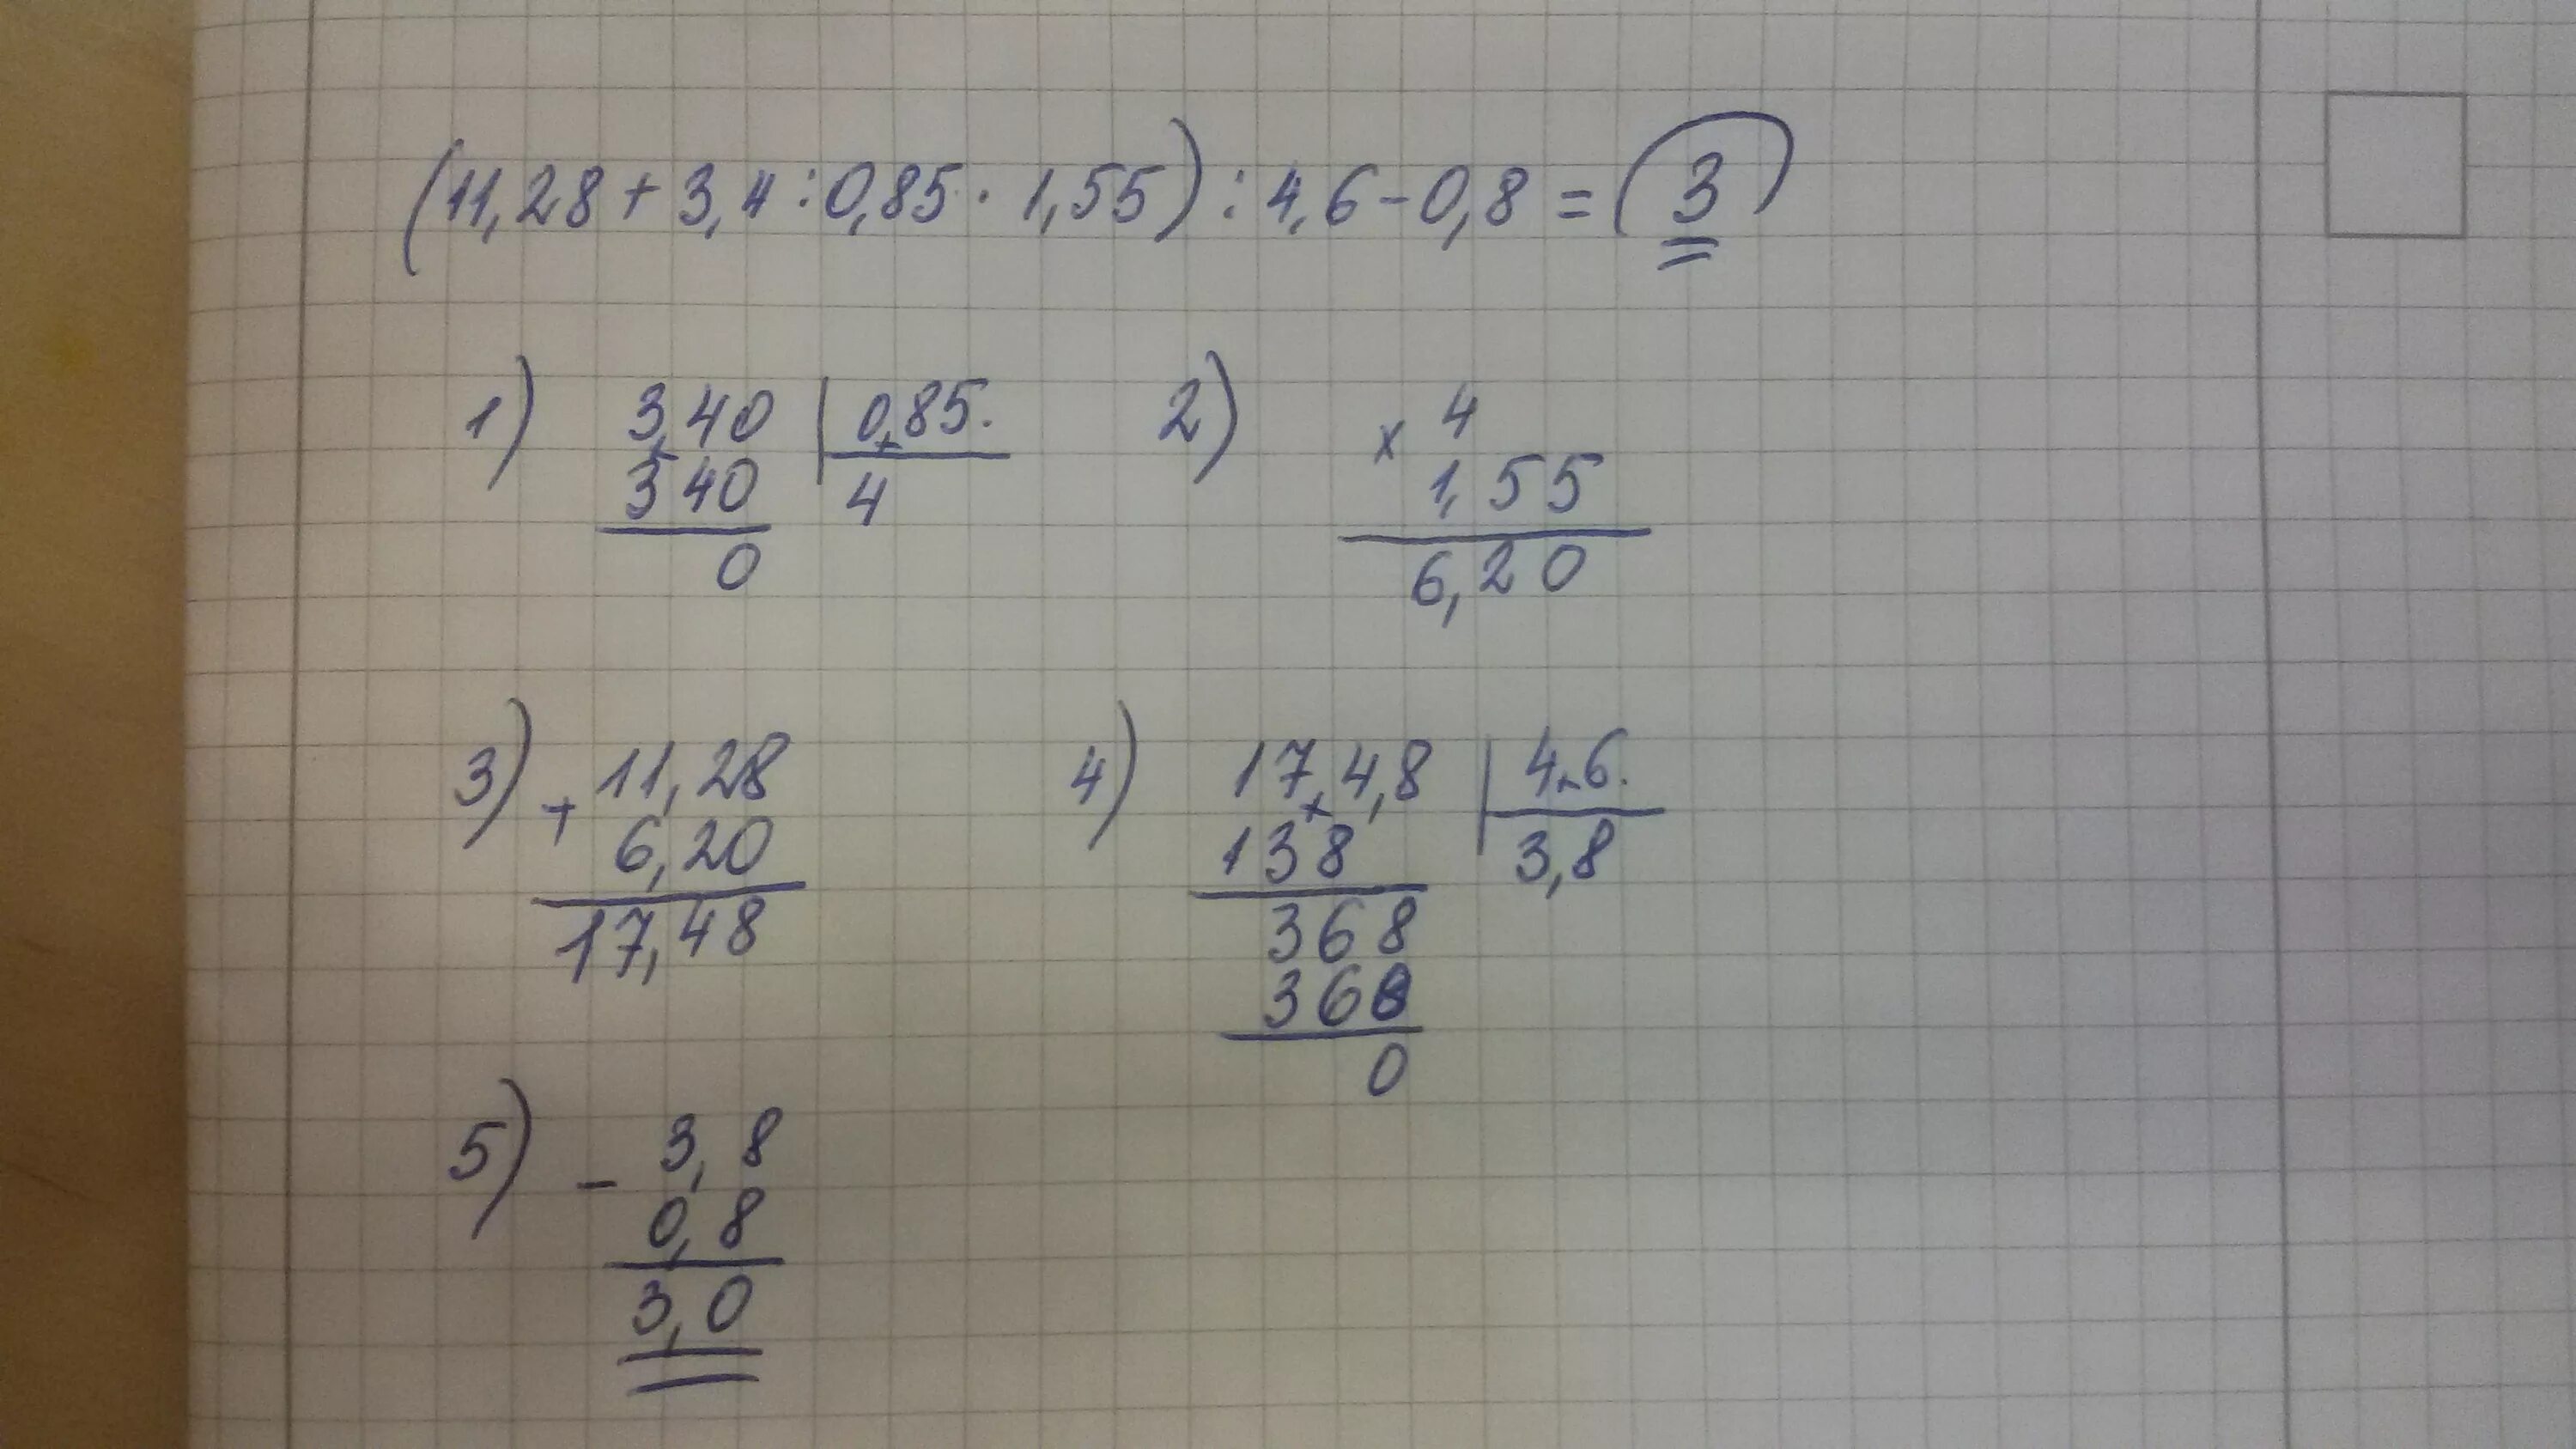 (11,28 + 3,4 : 0,85 · 1,55) : 4,6 - 0,8 = (3)
1) 3,40 | 0,85.
340 4
0
2) × 4
1,55
6,20
3) + 11,28
6,20
17,48
4) 17,4,8 | 4,6.
138 3,8
368
368
0
5) - 3,8
0,8
3,0